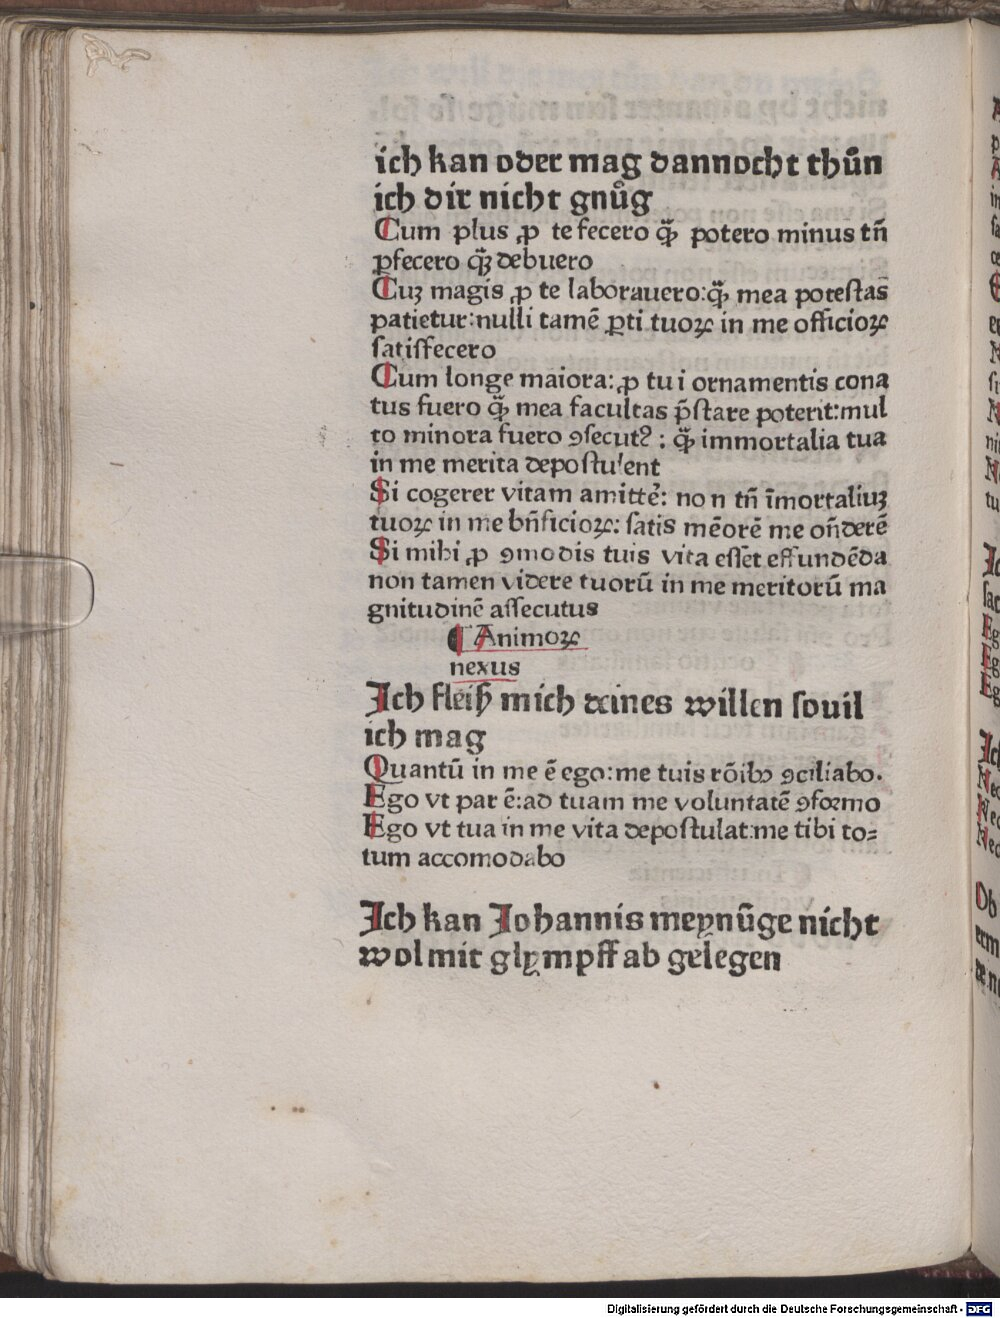 ich kan oder mag dannocht thůn
ich dir nicht gnůg
Cum plus ꝓ te fecero q̃ꝫ potero minus tñ
ꝑfecero q̃ꝫ debuero
Cuꝫ magis ꝓ te laborauero: q̃ꝫ mea potestas
patietur: nulli tamē ꝑti tuoꝝ in me officioꝝ
satisfecero
Cum longe maiora: ꝓ tui ornamentis cona
tus fuero q̃ꝫ mea facultas p̃stare poterit: mul
to minora fuero ꝯsecutꝰ: q̃ꝫ immortalia tua
in me merita depostulent
Si cogerer vitam amittẽ: non tñ īmortaliuꝫ
tuoꝝ in me bñficioꝝ: satis mēorē me oñderē
Si mihi ꝓ ꝯmodis tuis vita esset effundēda
non tamen videre tuorū in me meritorū ma
gnitudinē assecutus
¶ Animoꝝ
nexus
Ich fleiß mich deines willen souil
ich mag
Quantū in me ē ego: me tuis rōibꝰ ꝯciliabo.
Ego vt par ē: ad tuam me voluntatē ꝯformo
Ego vt tua in me vita depostulat: me tibi to⸗
tum accomodabo
Ich kan Johannis meynūge nicht
wol mit glympff ab gelegen
Digitalisierung gefördert durch die Deutsche Forschungsgemeinschaft - DFG